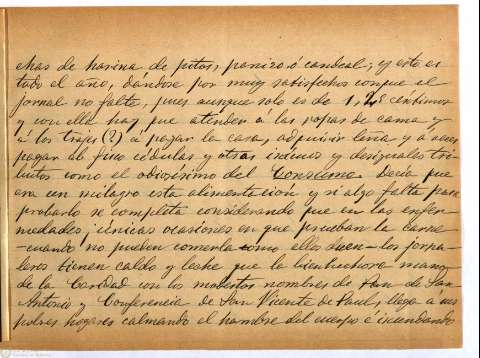 chas de harina de pitos, panizo, ó candeal; y esto es
todo el año, dándose por muy satisfechos conque el
jornal no falte, pues aunque solo es de 1,25 céntimos
y con ello hay que atender á las ropas de cama y
á los trajes (?) á pagar la casa, adquirir leña y a veces
pagar de fino cédulas y otros inicuos y desiguales tri-
butos como el odiosísimo del Consumo. Decía que
era un milagro esta alimentacion y si algo falta para
probarlo se completa considerando que en las enfer-
medades, únicas ocasiones en que prueban la carne
-cuando no pueden comerla como ellos dicen- los jorna-
leros tienen caldo y leche que la bienhechora mano
de la Caridad con los modestos nombres de Pan de San
Antonio y Conferencia de San Vicente de Paul, llega á sus
pobres hogares calmando el hambre del cuerpo é inundando